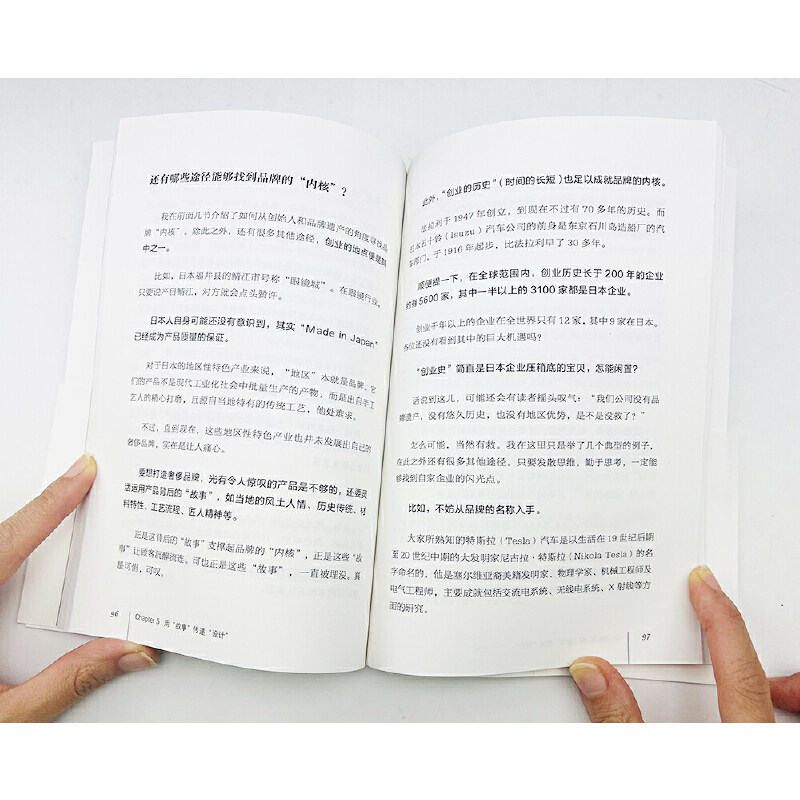 还有哪些途径能够找到品牌的“内核”？
我在前面几节介绍了如何从创始人和品牌遗产的角度寻找品
牌“内核”。除此之外，还有很多其他途径，创业的地点便是其
中之一。
比如，日本福井县的鲭江市号称“眼镜城”。在眼镜行业，
只要说产自鲭江，对方就会点头赞许。
日本人自身可能还没有意识到，其实“Made in Japan”
已经成为产品质量的保证。
对于日本的地区性特色产业来说，“地区”本就是品牌。它
们的产品不是现代工业化社会中批量生产的产物，而是出自手工
艺人的精心打磨，且源自当地特有的传统工艺，他处难求。
不过，直到现在，这些地区性特色产业也并未发展出自己的
奢侈品牌，实在是让人痛心。
要想打造奢侈品牌，光有令人惊叹的产品是不够的，还要灵
活运用产品背后的“故事”，如当地的风土人情、历史传统、材
料特性、工艺流程、匠人精神等。
正是这背后的“故事”支撑起品牌的“内核”，正是这些“故
事”让顾客沉醉流连。可也正是这些“故事”，一直被埋没。真
是可惜，可叹。
96
Chapter 5 用“故事”传递“设计”
此外，“创业的历史”（时间的长短）也足以成就品牌的内核。
法拉利于 1947 年创立，到现在不过有 70 多年的历史。而
日本五十铃（Isuzu）汽车公司的前身是东京石川岛造船厂的汽
车部门，于 1916 年起步，比法拉利早了 30 多年。
顺便提一下，在全球范围内，创业历史长于 200 年的企业
约有 5600 家，其中一半以上的 3100 家都是日本企业。
创业千年以上的企业在全世界只有 12 家，其中 9 家在日本。
各位还没有看到其中的巨大机遇吗？
“创业史”简直是日本企业压箱底的宝贝，怎能闲置？
话说到这儿，可能还会有读者摇头叹气：“我们公司没有品
牌遗产，没有悠久历史，也没有地区优势，是不是没救了？”
怎么可能，当然有救。我在这里只是举了几个典型的例子，
在此之外还有很多其他途径，只要发散思维，勤于思考，一定能
够找到自家企业的闪光点。
比如，不妨从品牌的名称入手。
大家所熟知的特斯拉（Tesla）汽车是以生活在 19 世纪后期
至 20 世纪中期的大发明家尼古拉·特斯拉（Nikola Tesla）的名
字命名的。他是塞尔维亚裔美籍发明家、物理学家、机械工程师及
电气工程师，主要成就包括交流电系统、无线电系统、X 射线等方
面的研究。
97